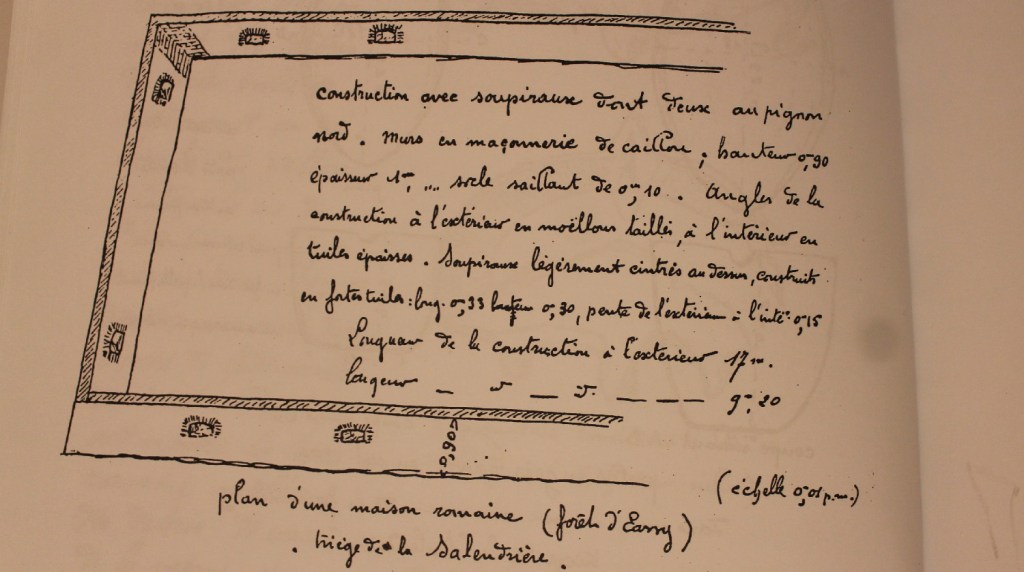 construction avec soupiraux dont deux au pignon
nord. Murs en maçonnerie de caillou; hauteur 0,90
épaisseur 1m, „„ socle saillant de 0m,10. Angles de la
construction à l'extérieur en moëllons taillés, à l'intérieur en
tuiles épaisses. Soupiraux légérement cintrés au dessus, construits
en fortes tuiles: long. 0,33 hauteur 0,30, pente de l'extérieur à l'inté: 0,15
Longueur de la construction à l'extérieur 17m.
largeur — — — — — 9m,20
0,90
(échelle 0,01 p.m.)
plan d'une maison romaine (forêt d'Eawy)
. triège de la Salendrière.